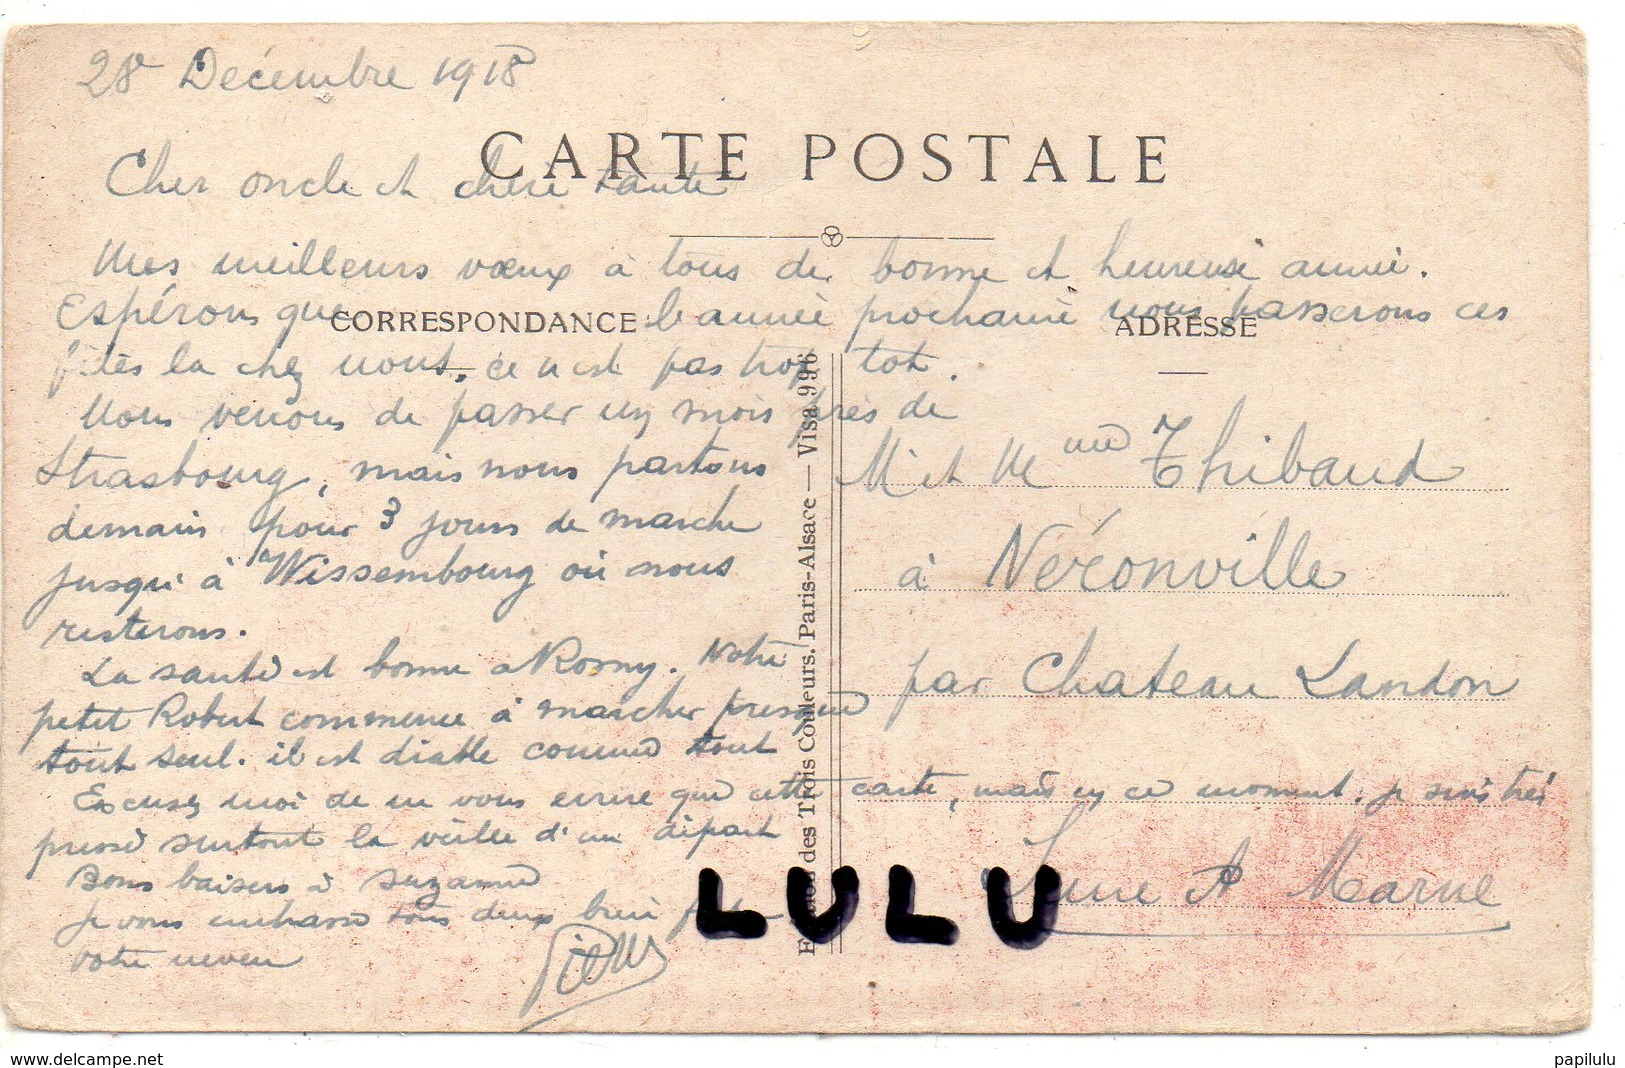 28 Décembre 1918
CARTE POSTALE
Cher oncle et chère tante
Mes meilleurs vœux à tous de bonne et heureuse année.
Espérons que l'année prochaine nous passerons ces
fêtes la chez nous. ce n'est pas trop tot.
CORRESPONDANCE
ADRESSE
Nous venons de passer un mois près de
Strasbourg, mais nous partons
demain pour 3 jours de marche
jusqu'à Wissembourg où nous
resterons.
La santé est bonne a Rosny. Notre
petit Robert commence à marcher presque
tout seul. il est diable comme tout
Excusez moi de ne vous écrire que cette carte, mais en ce moment je suis très
pressé surtout la veille d'un départ
Bons baisers à Suzanne
Je vous embrasse tous deux bien fort
votre neveu
Pierre
Edition des Trois Couleurs. Paris-Alsace — Visa 996
Mr et Mme Thibaud
à Néronville
par Chateau Landon
Seine et Marne
LULU
www.delcampe.net
papilulu